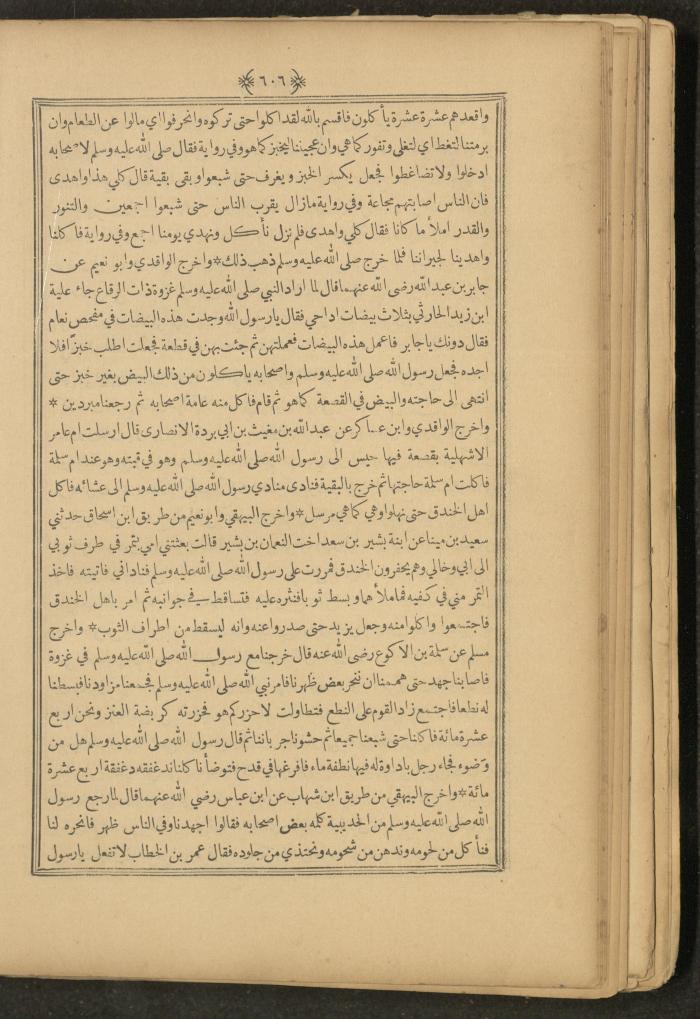 ٦٠٦
واقعدهم عشرة عشرة يأكلون فاقسم بالله لقد اكلوا حتى تركوه وانحرفوا اي مالوا عن الطعام وان
برمتنا لتغط اي لتغلي وتفور كما هي وان عجيننا ليخبز كما هو وفي رواية فقال صلى الله عليه وسلم لاصحابه
ادخلوا ولا تضاغطوا فجعل يكسر الخبز ويغرف حتى شبعوا وبقى بقية قال كلي هذا واهدى
فان الناس اصابتهم مجاعة وفي رواية مازال يقرب الناس حتى شبعوا اجمعين والتنور
والقدر املأ ما كانا فقال كلي واهدى فلم نزل نأكل ونهدي يومنا اجمع وفي رواية فاكلنا
واهدينا لجيراننا فلما خرج صلى الله عليه وسلم ذهب ذلك * واخرج الواقدي وابو نعيم عن
جابر بن عبد الله رضى الله عنهما قال لما اراد النبي صلى الله عليه وسلم غزوة ذات الرقاع جاء علية
ابن زيد الحارثي بثلاث بيضات اداحي فقال يارسول الله وجدت هذه البيضات في مفحص نعام
فقال دونك ياجابر فاعمل هذه البيضات فعملتهن ثم جئت بهن في قطعة فجعلت اطلب خبزًا فلا
اجده فجعل رسول الله صلى الله عليه وسلم واصحابه ياكلون من ذلك البيض بغير خبز حتى
انتهى الى حاجته والبيض في القصعة كما هو ثم قام فاكل منه عامة اصحابه ثم رجعنا مبردين *
واخرج الواقدي وابن عساكر عن عبدالله بن مغيث بن ابي بردة الانصارى قال ارسلت ام عامر
الاشهلية بقصعة فيها حيس الى رسول الله صلى الله عليه وسلم وهو في قبته وهو عند ام سلمة
فاكلت ام سلمة حاجتها ثم خرج بالبقية فنادى منادي رسول الله صلى الله عليه وسلم الى عشائه فاكل
اهل الخندق حتى نهلوا وهي كما هي مرسل * واخرج البيهقي وابو نعيم من طريق ابن اسحاق حدثني
سعيد بن مينا عن ابنة بشير بن سعد اخت النعمان بن بشير قالت بعثتني امي بتمر في طرف ثوبي
الى ابي وخالي وهم يحفرون الخندق فمررت على رسول الله صلى الله عليه وسلم فناداني فاتيته فاخذ
التمر مني في كفيه فملأهما وبسط ثوبا فنثره عليه فتساقط في جوانبه ثم امر باهل الخندق
فاجتمعوا واكلوا منه وجعل يزيد حتى صدروا عنه وانه ليسقط من اطراف الثوب * واخرج
مسلم عن سلمة بن الاكوع رضى الله عنه قال خرجنا مع رسول الله صلى الله عليه وسلم في غزوة
فاصابنا جهد حتى هممنا ان ننحر بعض ظهرنا فامر نبي الله صلى الله عليه وسلم فجمعنا مزاودنا فبسطنا
له نطعا فاجتمع زاد القوم على النطع فتطاولت لاحزركم هو فحزرته كربضة العنز ونحن اربع
عشرة مائة فاكلنا حتى شبعنا جميعا ثم حشونا جربانا ثم قال رسول الله صلى الله عليه وسلم هل من
وضوء فجاء رجل باداوة له فيها نطفة ماء فافرغها في قدح فتوضأنا كلنا ندغفقه دغفقة اربع عشرة
مائة * واخرج البيهقي من طريق ابن شهاب عن ابن عباس رضي الله عنهما قال لما رجع رسول
الله صلى الله عليه وسلم من الحديبية كلمه بعض اصحابه فقالوا اجهدنا وفي الناس ظهر فانحره لنا
فنأكل من لحومه وندهن من شحومه ونحتذي من جلوده فقال عمر بن الخطاب لا تفعل يارسول